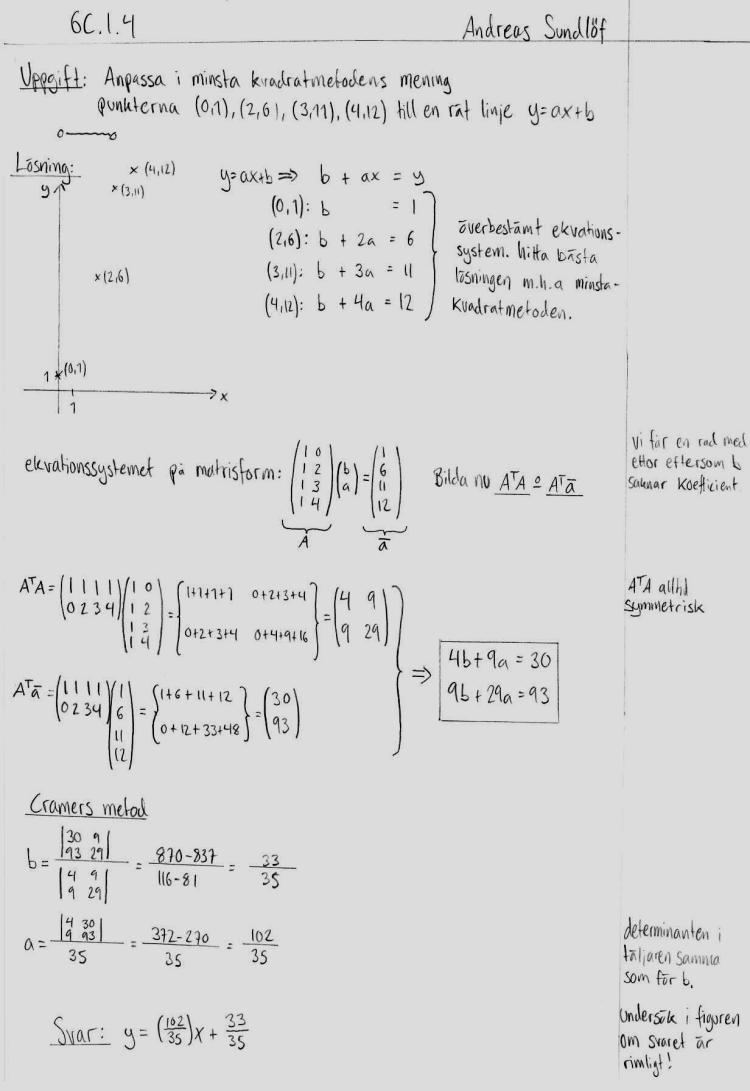 6C.1.4
Andreas Sundlöf
Uppgift: Anpassa i minsta kvadratmetodens mening
punkterna (0,1), (2,6), (3,11), (4,12) till en rät linje y=ax+b
Lösning:
y
× (4,12)
× (3,11)
× (2,6)
1 × (0,1)
1
x
y=ax+b ⇒ b + ax = y
(0,1): b = 1
(2,6): b + 2a = 6
(3,11): b + 3a = 11
(4,12): b + 4a = 12
överbestämt ekvations-
system. hitta bästa
lösningen m.h.a minsta-
kvadratmetoden.
ekvationssystemet på matrisform: (1 0; 1 2; 1 3; 1 4) (b; a) = (1; 6; 11; 12)
A
ā
Bilda nu AᵀA o Aᵀā
vi får en rad med
ettor eftersom b
saknar koefficient.
AᵀA = (1 1 1 1; 0 2 3 4) (1 0; 1 2; 1 3; 1 4) = {1+1+1+1 0+2+3+4; 0+2+3+4 0+4+9+16} = (4 9; 9 29)
AᵀA alltid
symmetrisk
Aᵀā = (1 1 1 1; 0 2 3 4) (1; 6; 11; 12) = {1+6+11+12; 0+12+33+48} = (30; 93)
⇒
4b+9a = 30
9b+29a = 93
Cramers metod
b = |30 9; 93 29| / |4 9; 9 29| = 870-837 / 116-81 = 33 / 35
a = |4 30; 9 93| / 35 = 372-270 / 35 = 102 / 35
determinanten i
täljaren samma
som för b.
Svar: y = (102/35)x + 33/35
Undersök i figuren
om svaret är
rimligt!